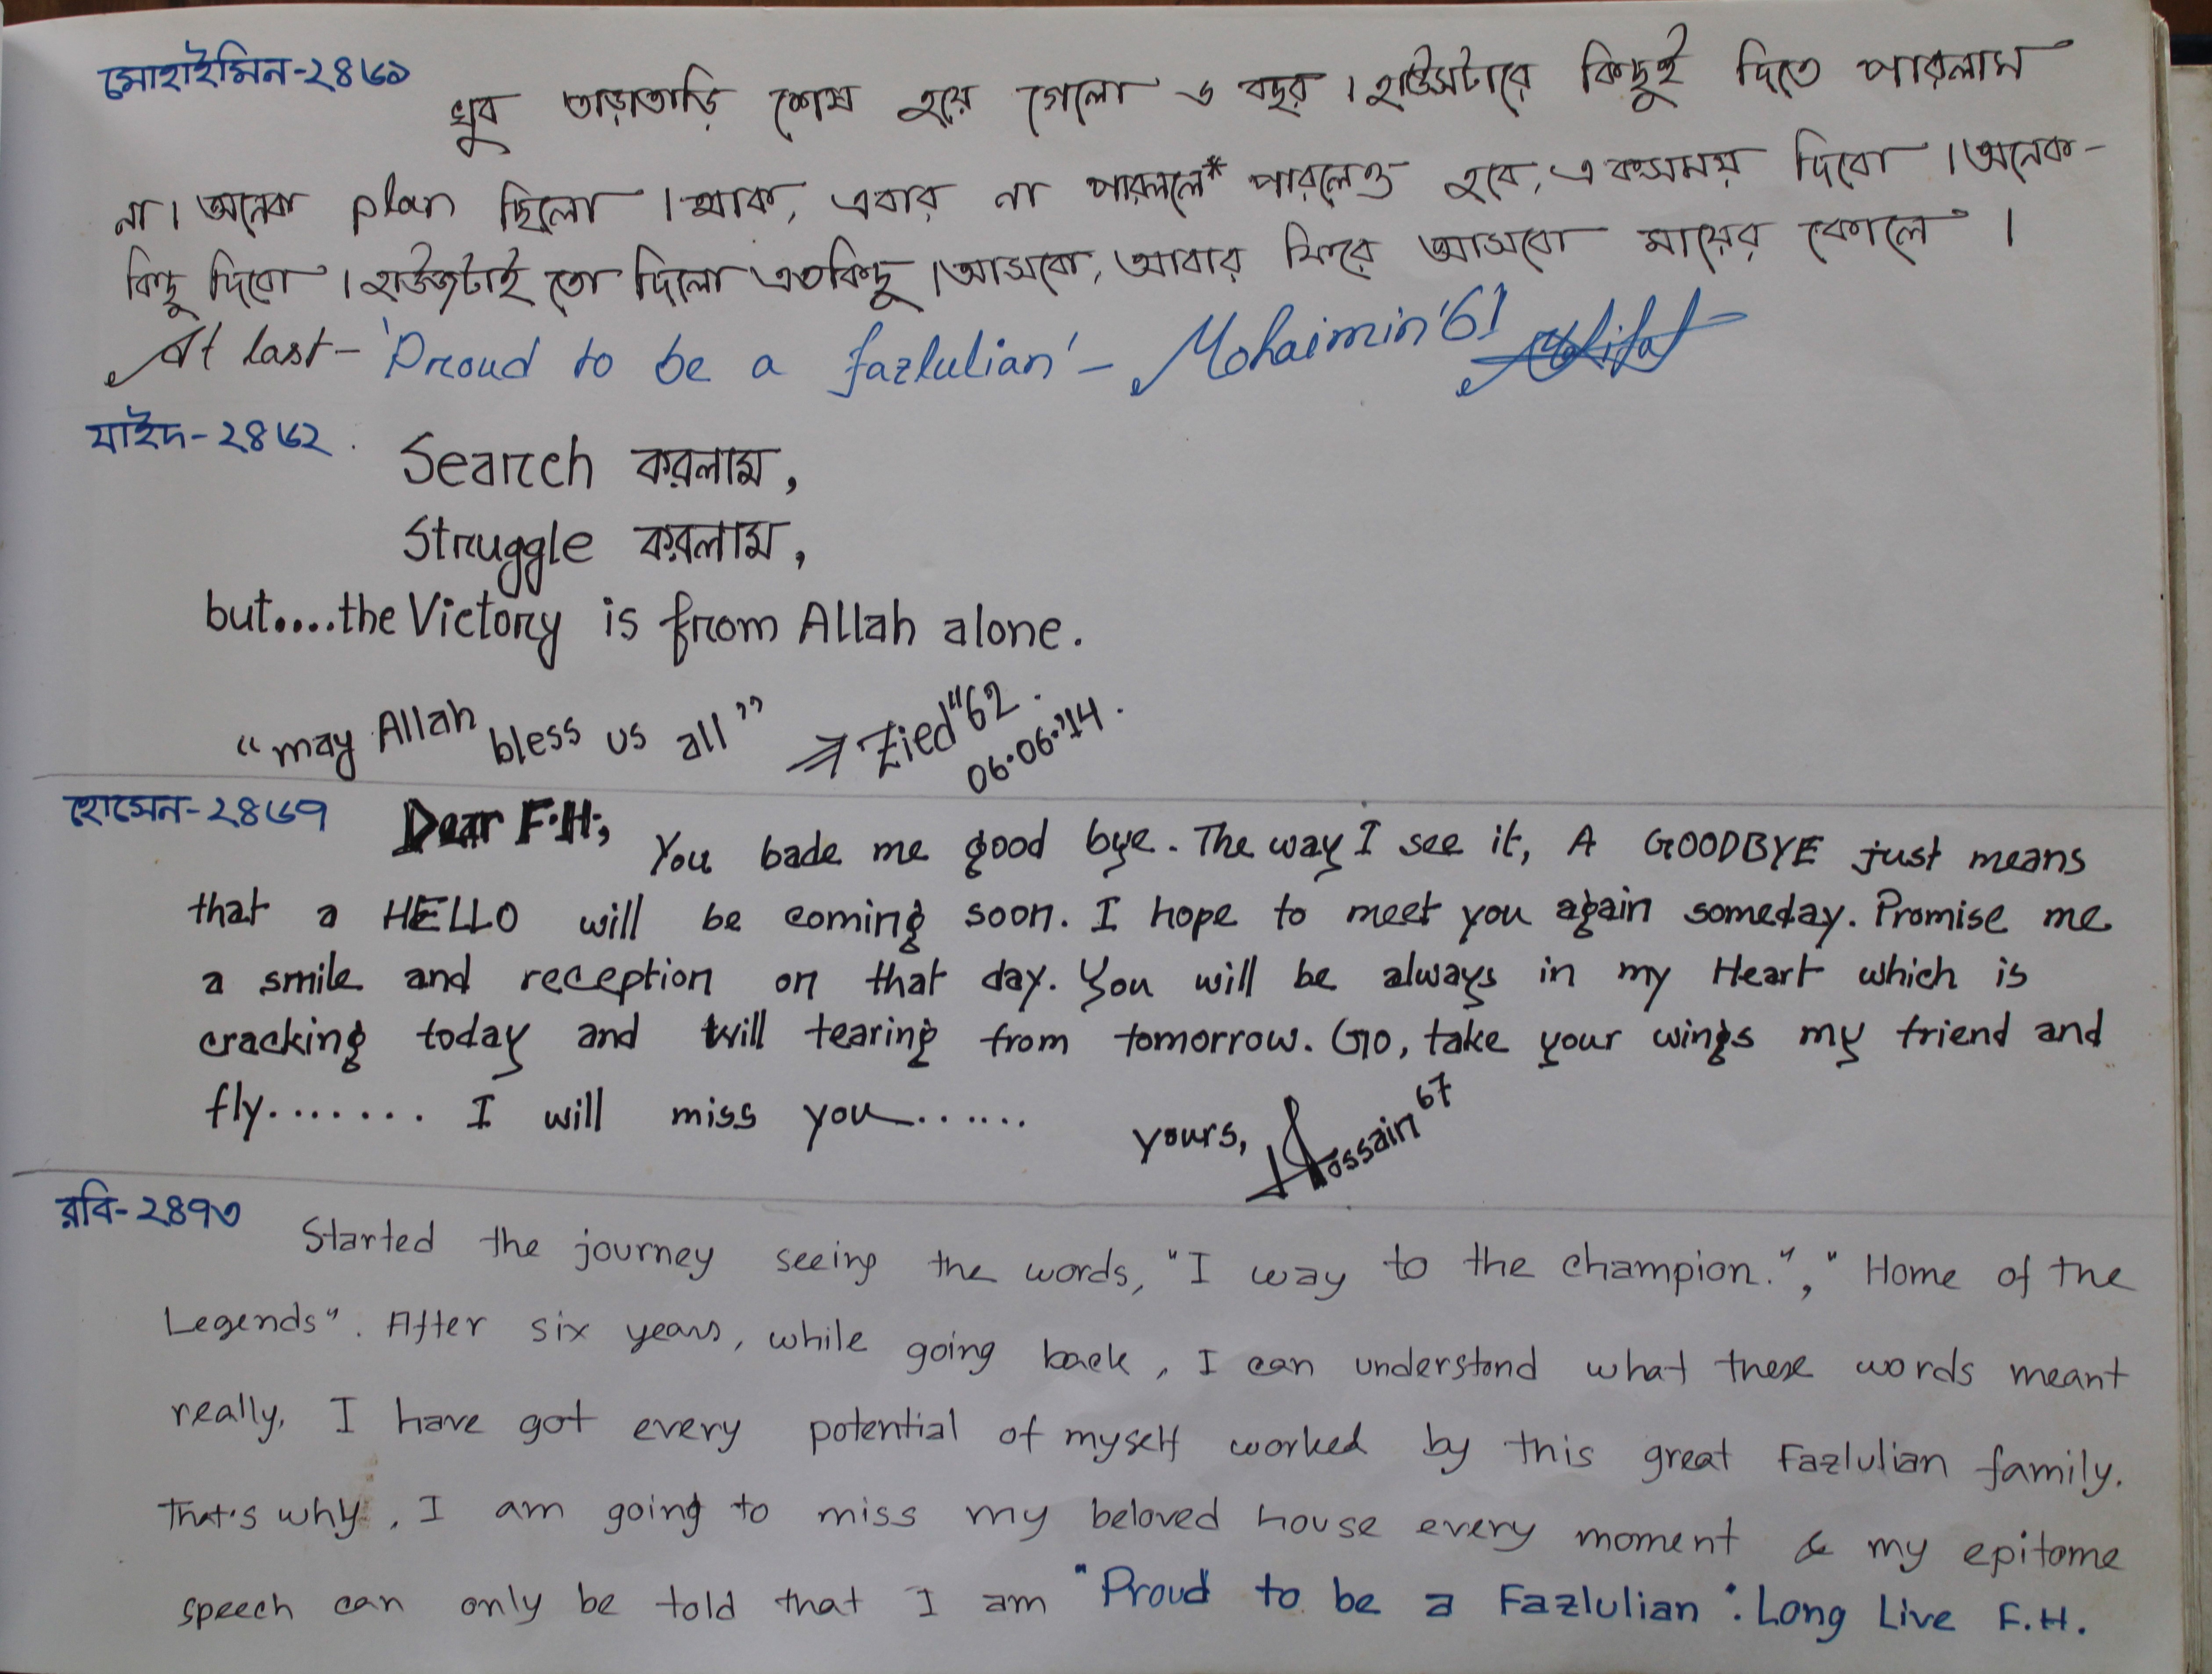 মোহাইমিন-২৪৬১
খুব তাড়াতাড়ি শেষ হয়ে গেলো ৬ বছর । হাউসটারে কিছুই দিতে পারলাম
না। অনেক plan ছিলো । থাক, এবার না পারললে* পারলেও হবে, একসময় দিবো । অনেক-
কিছু দিবো । হাউজটাই তো দিলো এতকিছু । আসবো, আবার ফিরে আসবো মায়ের কোলে ।
At last- 'Proud to be a fazlulian' - Mohaimin'61
যাইদ-২৪৬২.
Search করলাম,
Struggle করলাম,
but....the Victory is from Allah alone.
"may Allah bless us all" ⇒ Zied"62.
06.06.'14.
হোসেন-২৪৬৭
Dear F.H;
You bade me good bye. The way I see it, A GOODBYE just means
that a HELLO will be coming soon. I hope to meet you again someday. Promise me
a smile and reception on that day. You will be always in my Heart which is
cracking today and will tearing from tomorrow. Go, take your wings my friend and
fly....... I will miss you......
yours, Hossain 67
রবি-২৪৭৩
Started the journey seeing the words, "I way to the champion.", "Home of the
Legends". After six years, while going back, I can understand what these words meant
really. I have got every potential of myself worked by this great Fazlulian family.
That's why, I am going to miss my beloved house every moment & my epitome
speech can only be told that I am "Proud to be a Fazlulian". Long Live F.H.